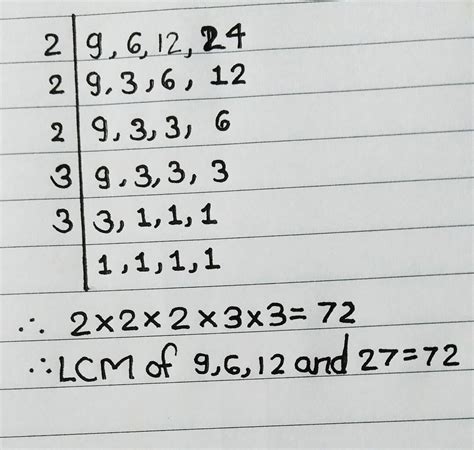 2 9, 6, 12, 24
2 9, 3, 6, 12
2 9, 3, 3, 6
3 9, 3, 3, 3
3 3, 1, 1, 1
1, 1, 1, 1
∴ 2×2×2×3×3=72
∴ LCM of 9,6,12 and 27=72